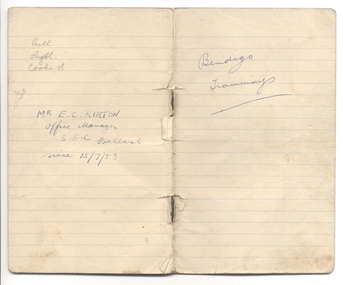 Bill
MR E.C. KIRTON
Office Manager
S.E.C. Ballarat
since 15/7/53
Bendigo
Tramways